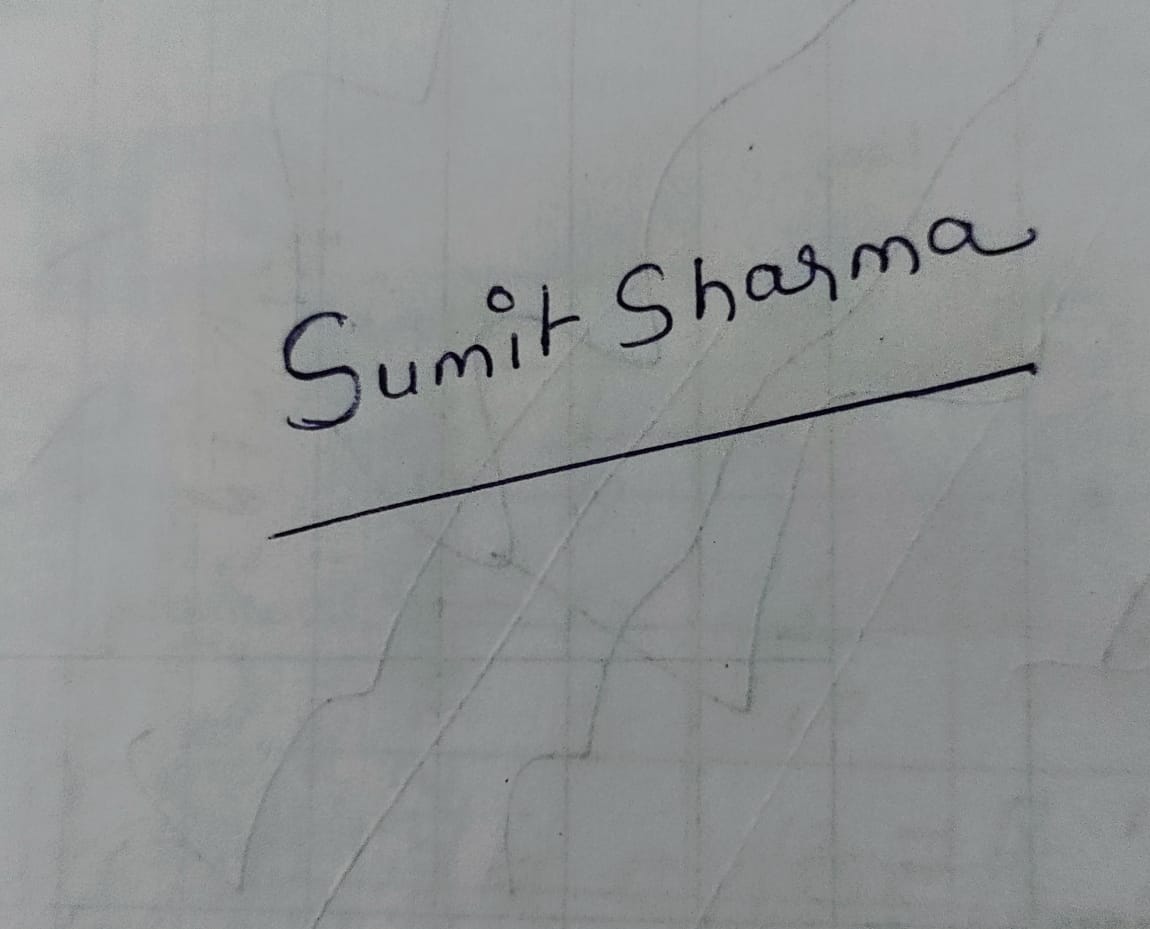 Sumit Sharma